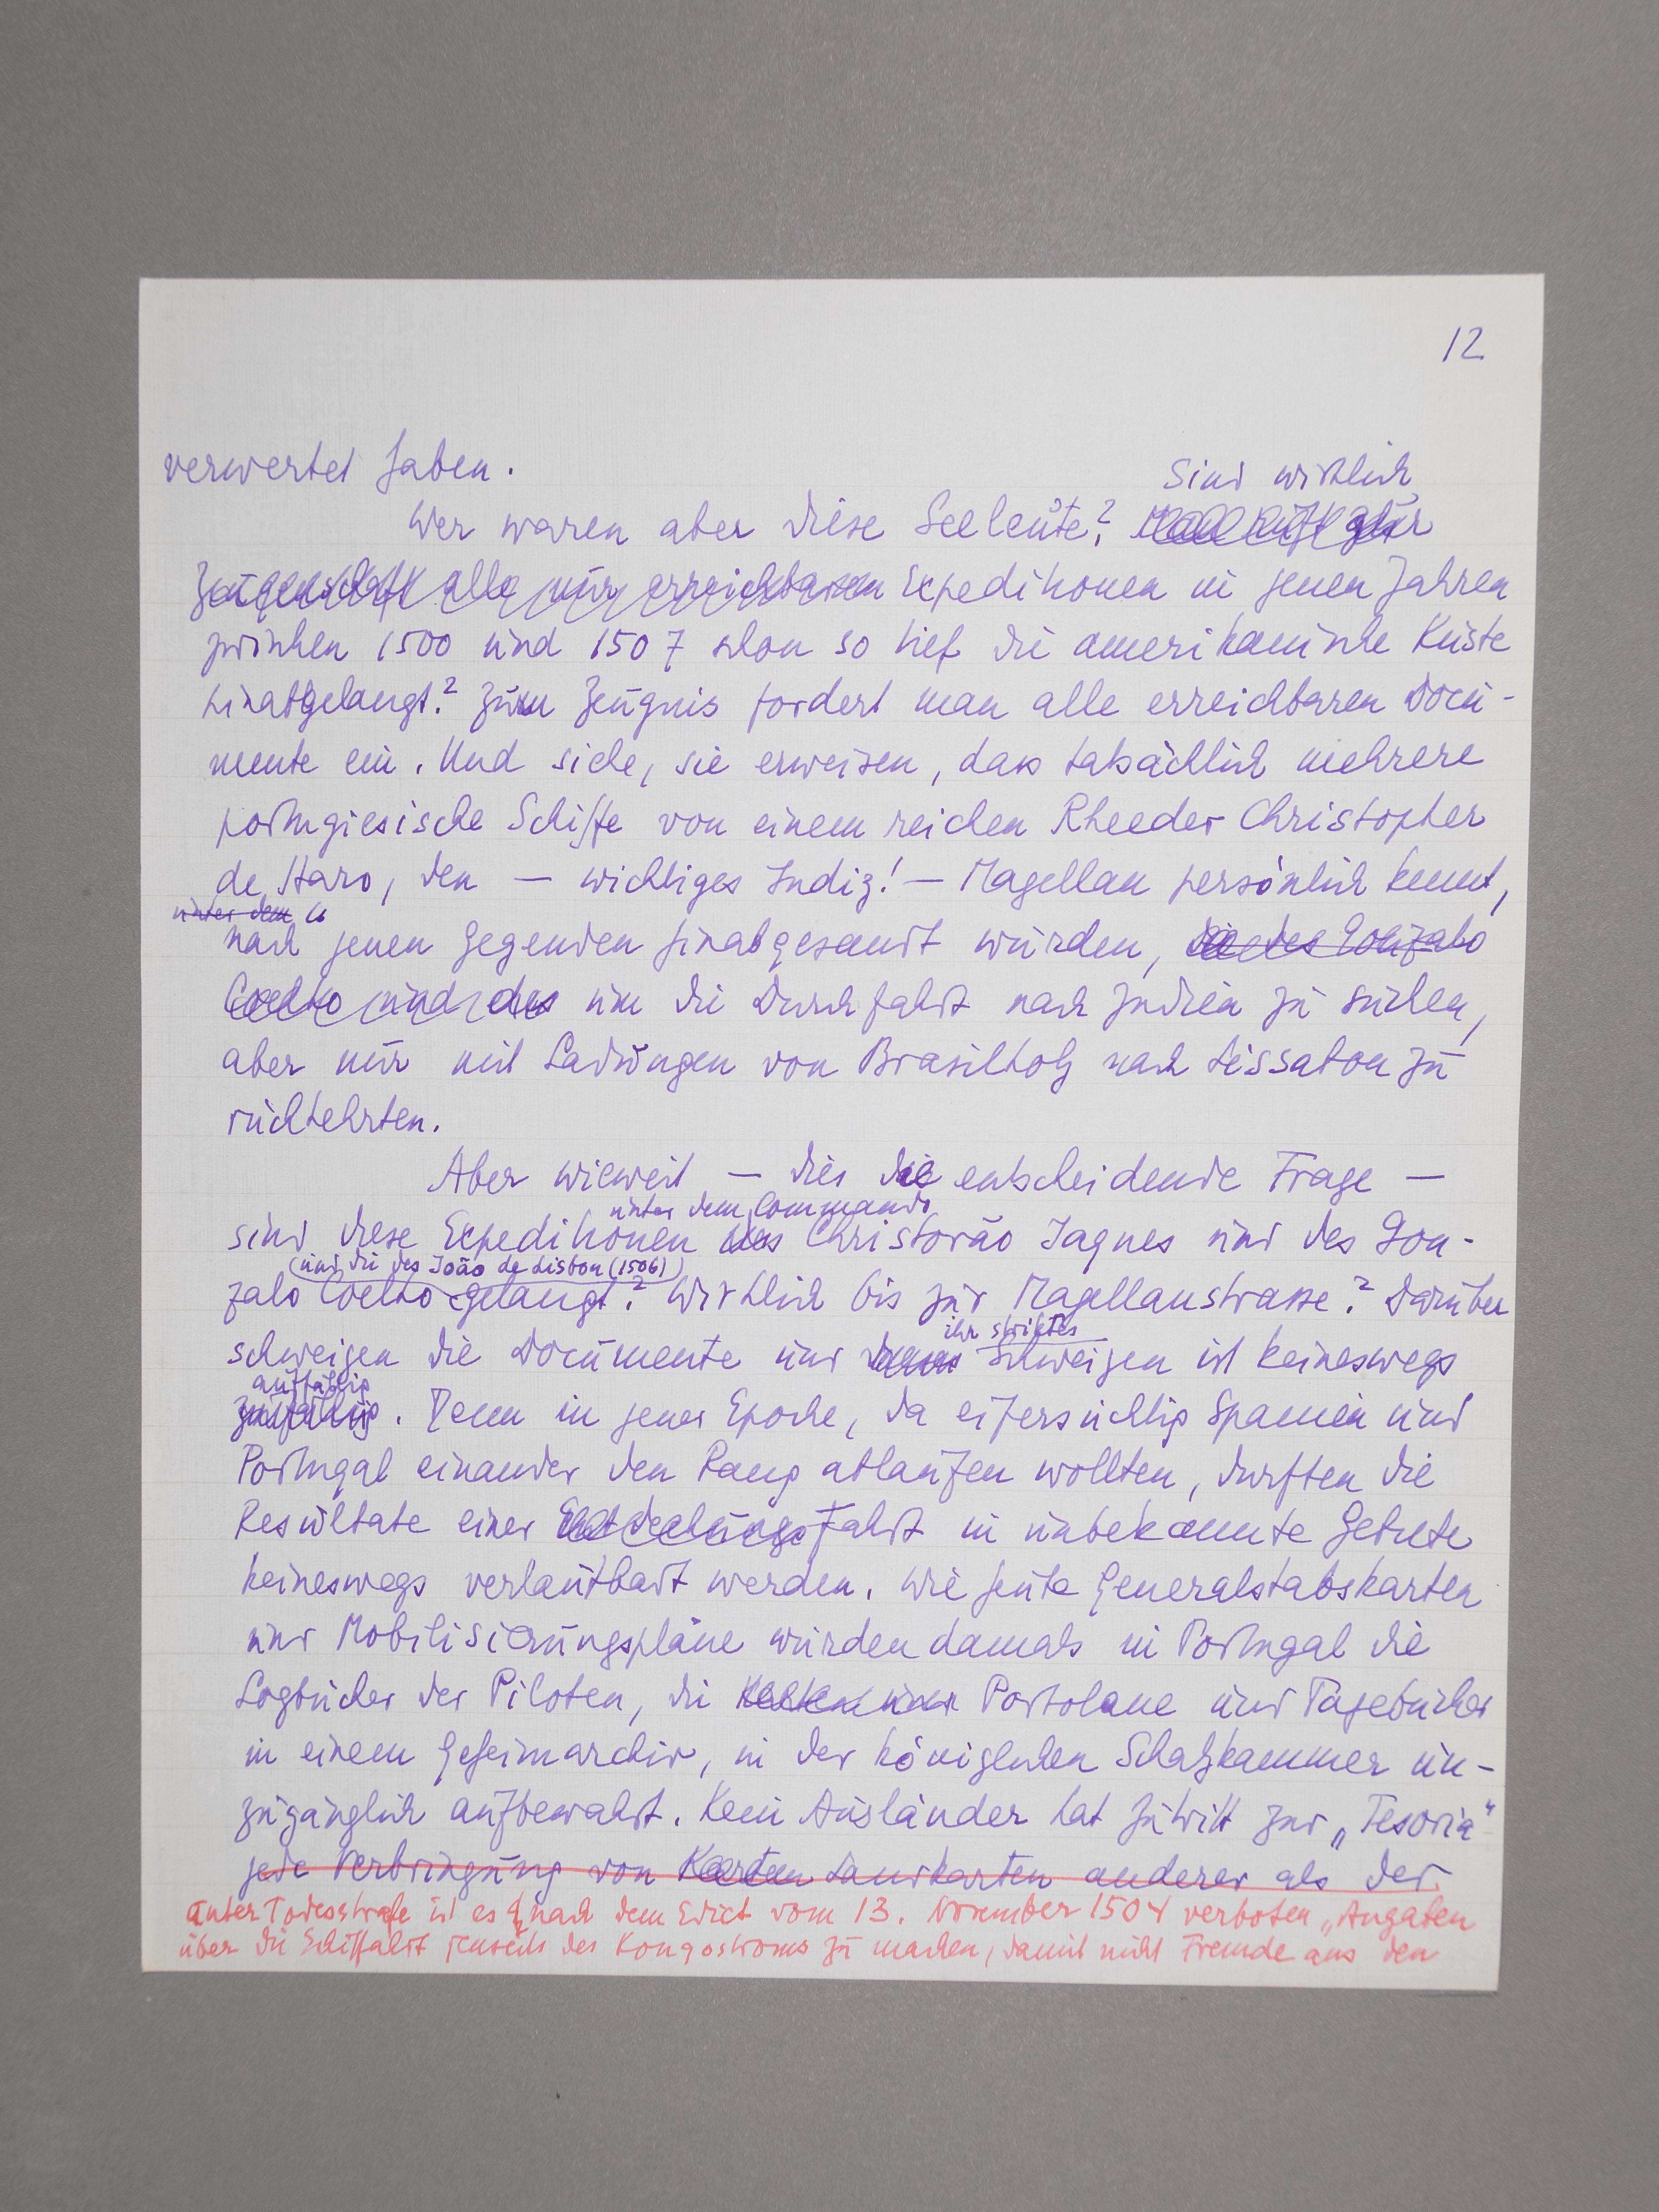 12
verwertet haben.
Sind wirklich
Wer waren aber diese Seeleute? Man ruft zur
Zeugenschaft alle nur erreichbaren Expeditionen in jenen Jahren
zwischen 1500 und 1507 schon so tief die amerikanische Küste
hinabgelangt? Zum Zeugnis fordert man alle erreichbaren Docu-
mente ein. Und siehe, sie erweisen, dass tatsächlich mehrere
portugiesische Schiffe von einem reichen Rheeder Christopher
de Haro, den — wichtiges Indiz! — Magellan persönlich kennt,
unter dem
nach jenen Gegenden hinabgesandt wurden, die des Gonzalo
Coelho und des um die Durchfahrt nach Indien zu suchen,
aber nur mit Ladungen von Brasilholz nach Lissabon zu
rückkehrten.
Aber wieweit — dies die entscheidende Frage —
unter dem Commando
sind diese Expeditionen des Christovão Jaques und des Gon-
(und die des João de Lisboa (1506))
zalo Coelho gelangt? Wirklich bis zur Magellanstrasse? Darüber
ihr striktes
schweigen die Documente und Schweigen ist keineswegs
auffällig
zufällig. Denn in jener Epoche, da eifersüchtig Spanien und
Portugal einander den Rang ablaufen wollten, durften die
Resultate einer Entdeckungsfahrt in unbekannte Gebiete
keineswegs verlautbart werden. Wie heute Generalstabskarten
und Mobilisierungspläne wurden damals in Portugal die
Logbücher der Piloten, die Karten und Portolane und Tagebücher
in einem Geheimarchiv, in der königlichen Schatzkammer un-
zugänglich aufbewahrt. Kein Ausländer hat Zutritt zur „Tesoria“
jede Verbringung von Karten Landkarten anderer als der
unter Todesstrafe ist es nach dem Edict vom 13. November 1504 verboten „Angaben
über die Schiffahrt jenseits des Kongostroms zu machen, damit nicht Fremde aus den